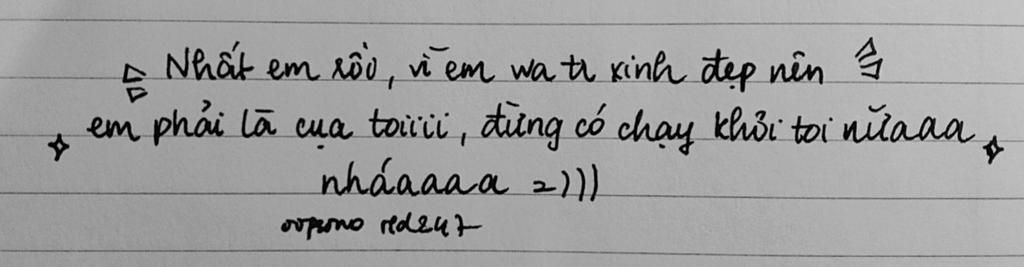 Nhất em rồi, vì em wa tr xinh đẹp nên
em phải là cụa toiiii, đừng có chạy khỏi toi nữaaa
nháaaaa =)))